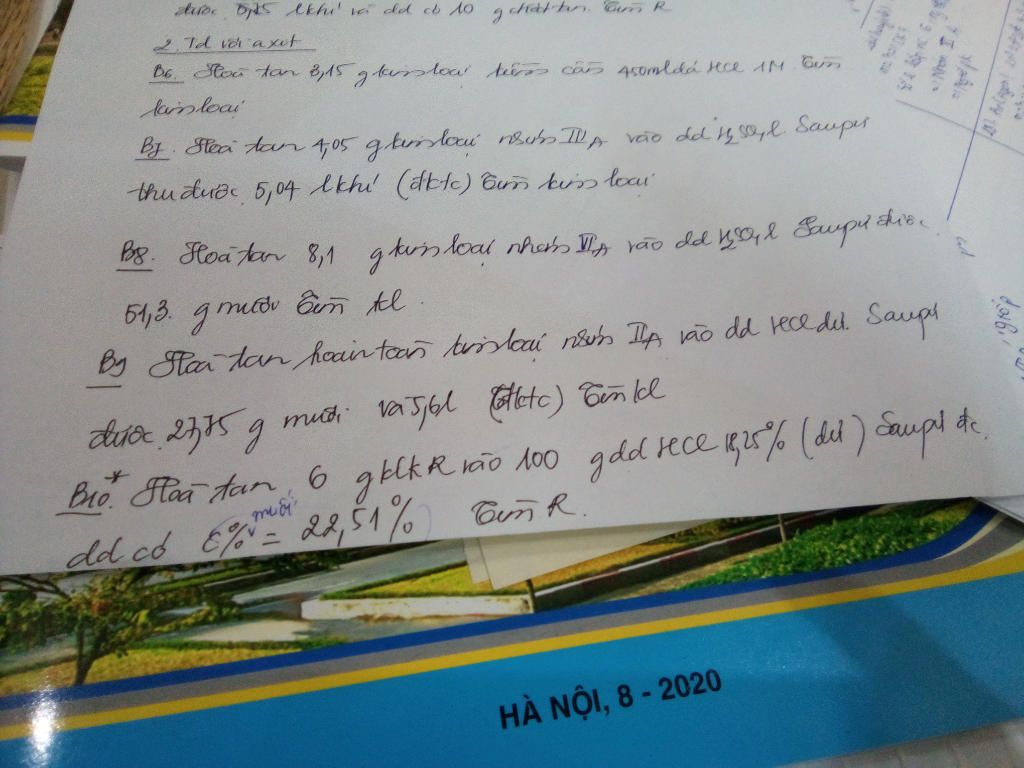 được 5,15 l khí và dd có 10 g chất tan. Tìm R
2. Td với axit
B6. Hoà tan 3,15 g kim loại kiềm cần 450ml dd HCl 1M Tìm
kim loại
B7. Hoà tan 4,05 g kim loại nhóm IIIA vào dd H2SO4 l. Saupứ
thu được 5,04 l khí (đktc) Tìm kim loại
B8. Hoà tan 8,1 g kim loại nhóm IIIA vào dd H2SO4 l Saupứ được
51,3. g muối Tìm kl.
B9 Hoà tan hoàn toàn kim loại nhóm IIA vào dd HCl dư. Saupứ
được 27,75 g muối và 5,6l (đktc) Tìm kl
B10.* Hoà tan 6 g klk R vào 100 g dd HCl 18,25% (dư) Saupứ đc
dd có C% muối = 22,51% Tìm R.
HÀ NỘI, 8 - 2020